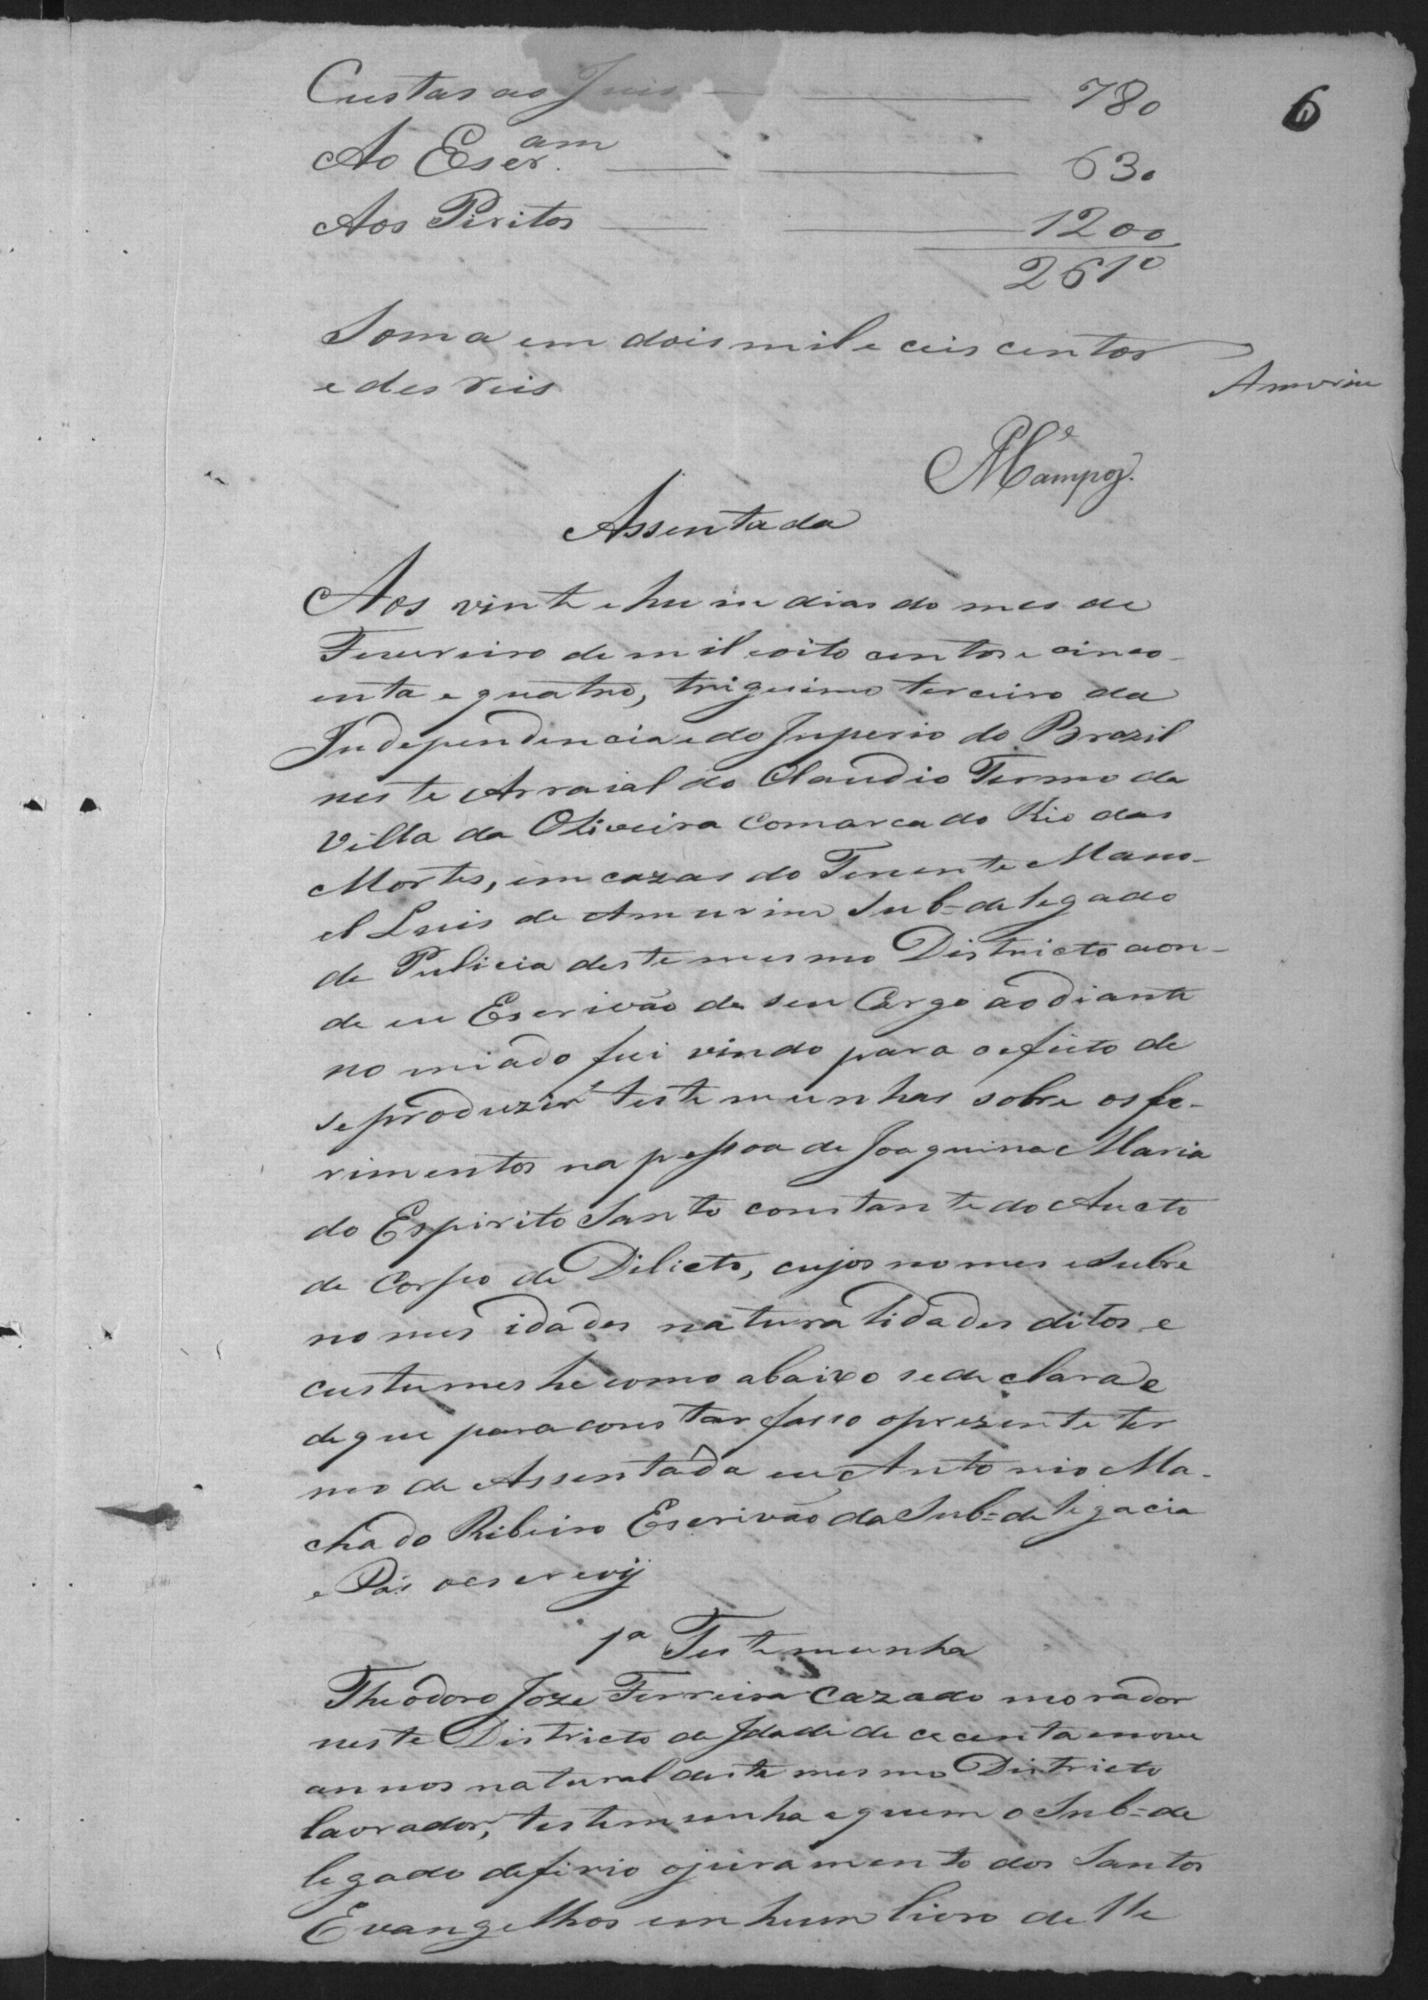 Custas ao Juis 780
6
Ao Escr.am 630
Aos Piritos 1200
2610
Soma em dois mil e ceis centos
e des reis
Amorim
Assentada
Aos vinte hum dias do mes de
Fevereiro de mil eoito centos e cinco-
enta e quatro, trigesimo terceiro da
Independencia e do Imperio do Brazil
neste Arraial do Claudio Termo da
Villa da Oliveira Comarca do Rio das
Mortes, em cazas do Tenente Mano-
el Luis de Amurim Sub=delegado
de Pulicia deste mesmo Districto aon-
de eu Escrivão de seu Cargo ao diante
nomiado fui vindo para o efeito de
se produzir testemunhas sobre os fe-
rimentos na pessoa de Joaquina Maria
do Espirito Santo constante do Aucto
de Corpo de Dilicto, cujos nomes e Subre
nomes idades naturalidades ditos e
custumes he como abaixo se declara e
de que para constar fasso o prezente ter
mo de Assentada eu Antonio Ma-
chado Ribeiro Escrivão da Sub=deligacia
e Pás o escrevy
1a Testemunha
Theodoro Joze Ferreira Cazado morador
neste Districto de Idade de cecenta e nove
annos natural deste mesmo Districto
lavrador, testemunha a quem o Sub=de
legado defirio o juramento dos Santos
Evangelhos em hum livro delle